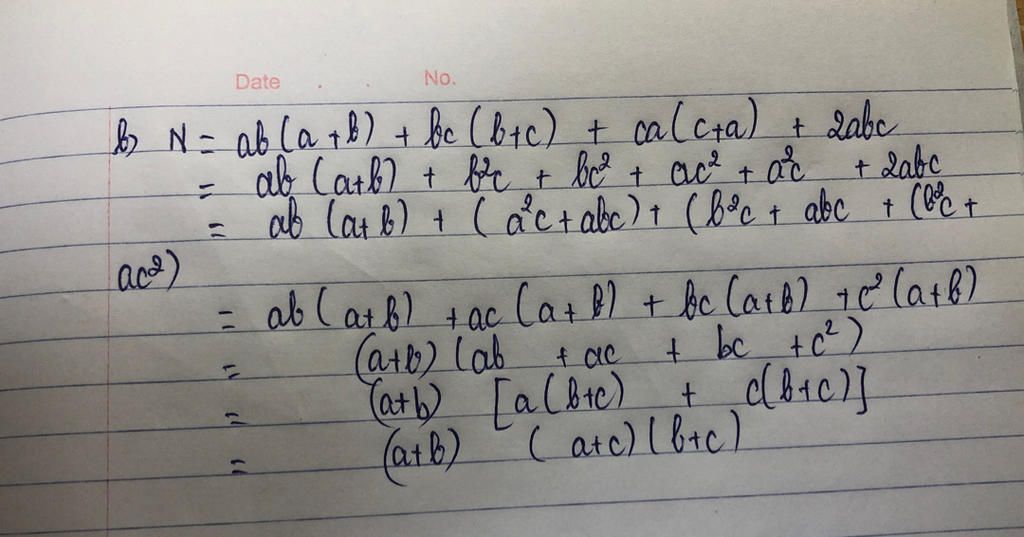 Date . . No.
b) N = ab(a+b) + bc(b+c) + ca(c+a) + 2abc
= ab (a+b) + b²c + bc² + ac² + a²c + 2abc
= ab (a+b) + (a²c + abc) + (b²c + abc + (b²c +
ac²)
= ab (a+b) + ac (a+b) + bc (a+b) + c² (a+b)
= (a+b) (ab + ac + bc + c²)
= (a+b) [a(b+c) + c(b+c)]
= (a+b) (a+c) (b+c)